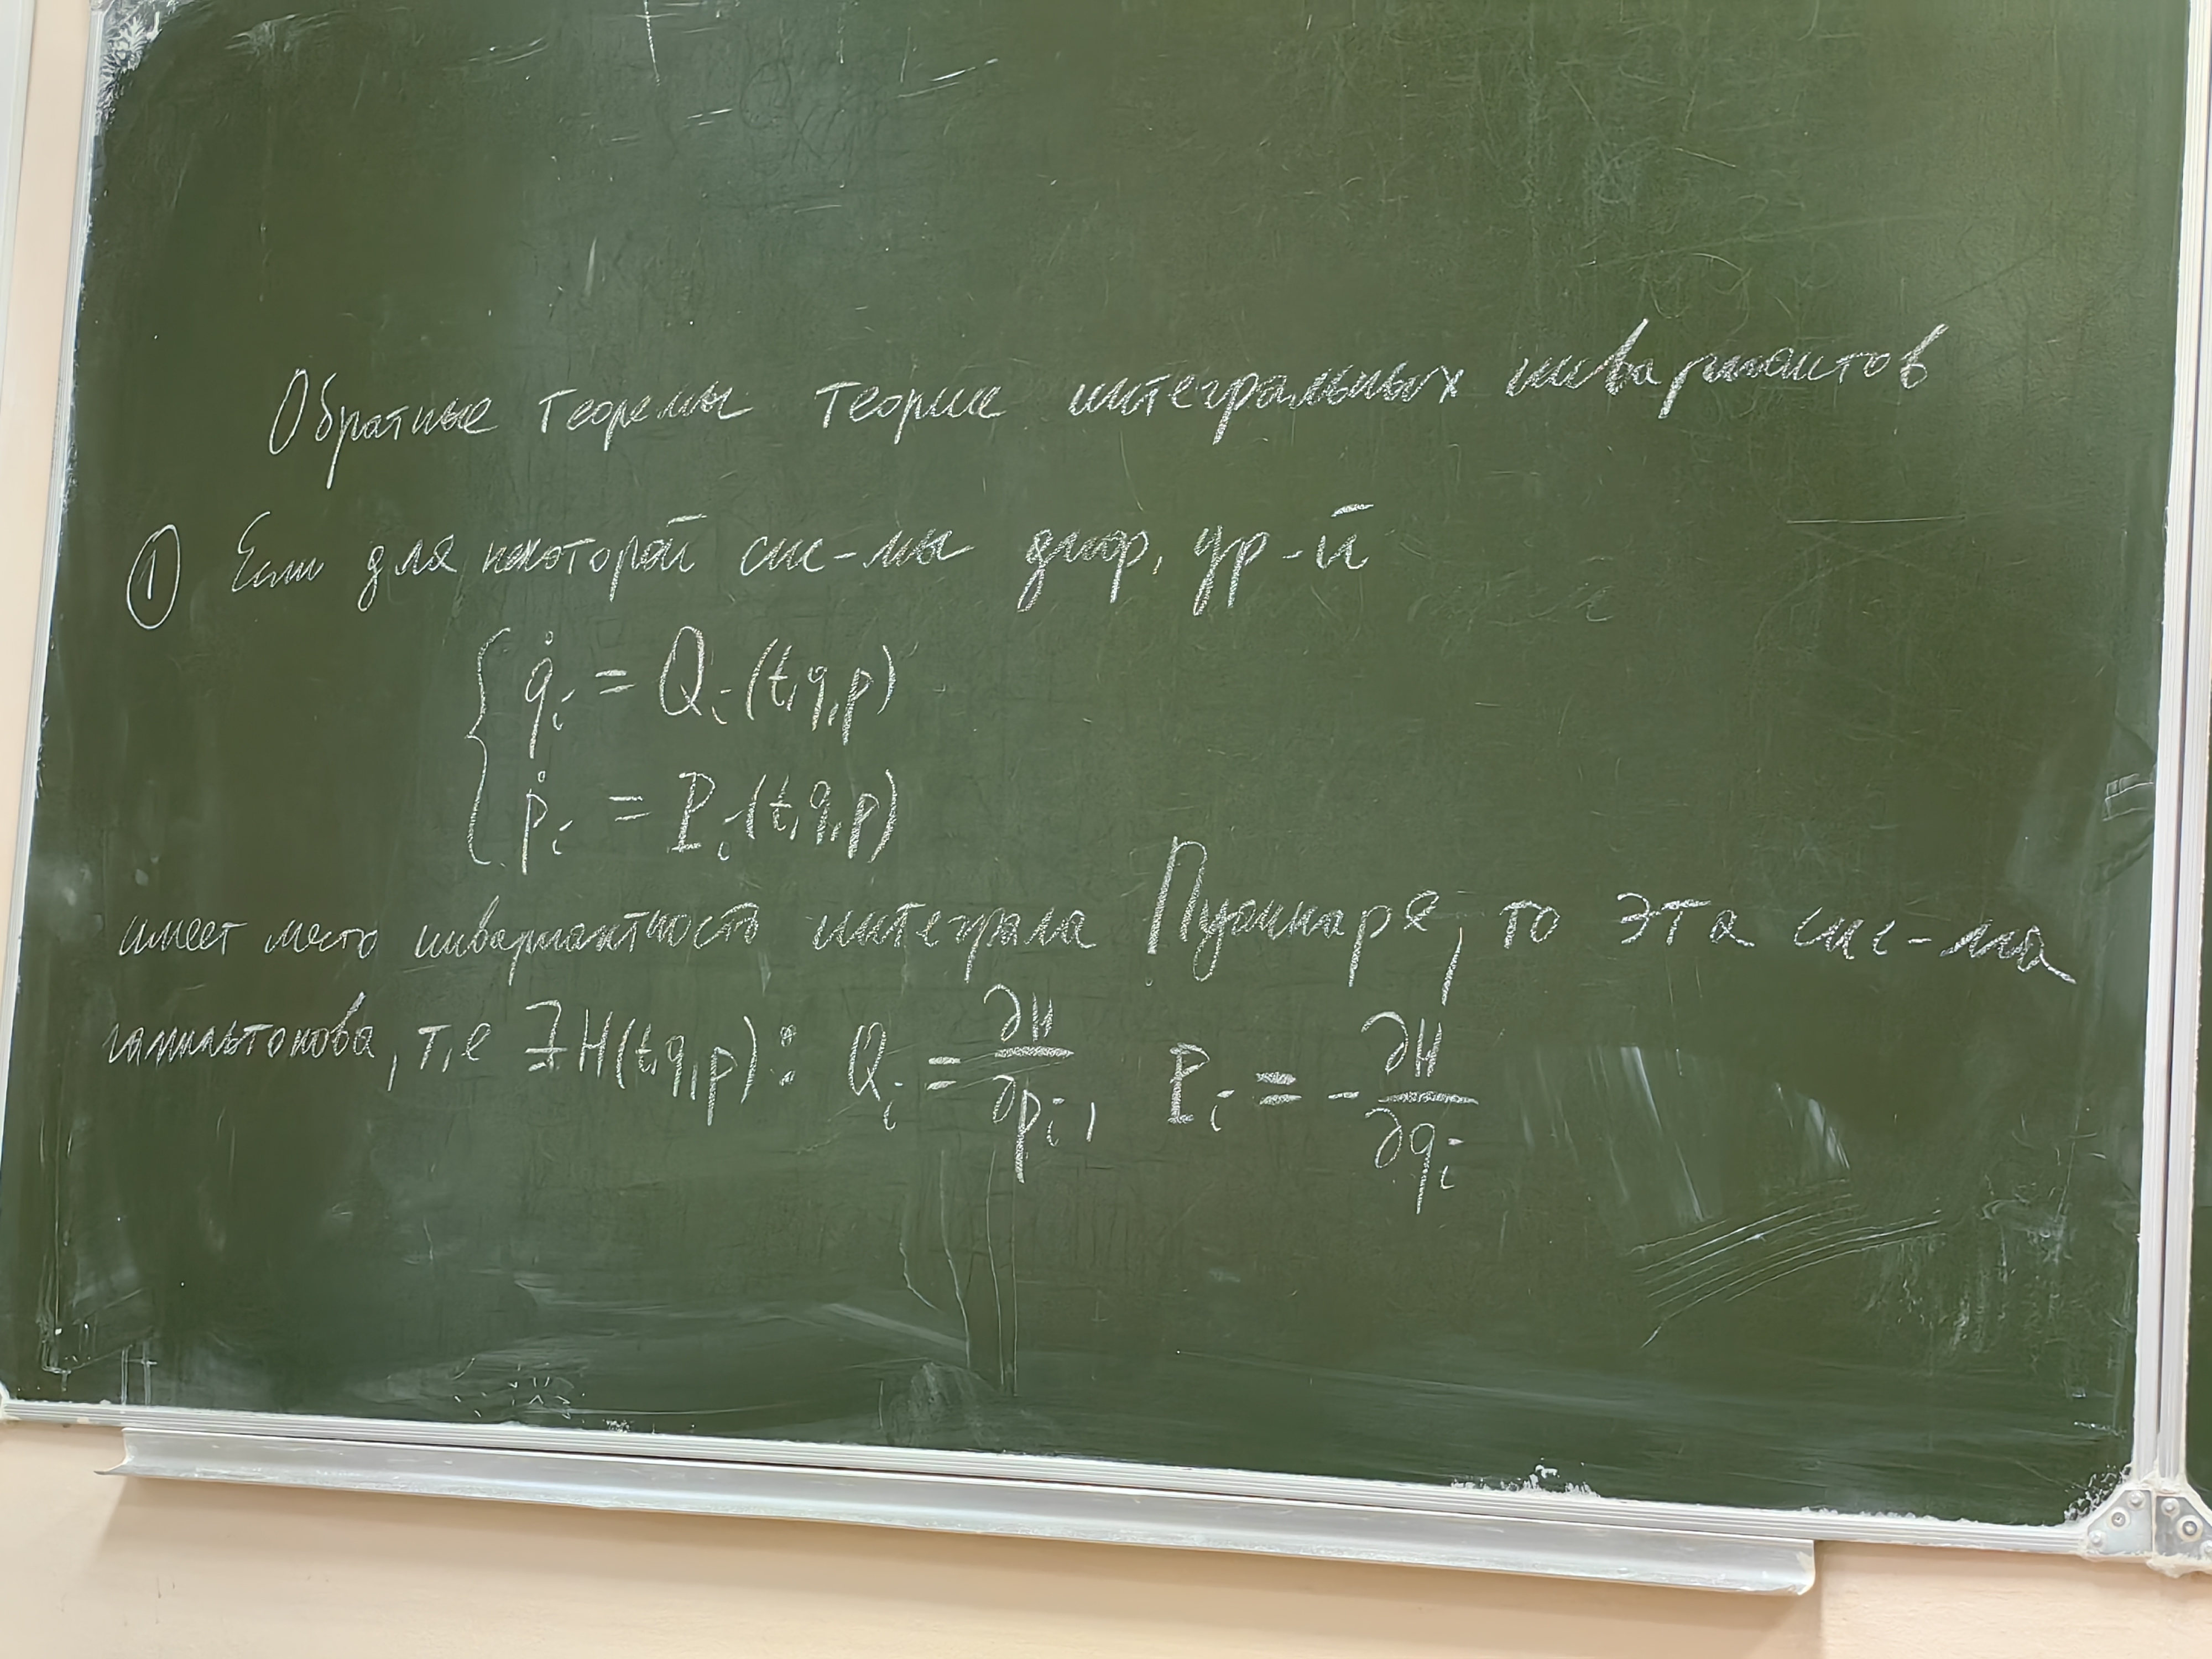 Обратные теоремы теории интегральных инвариантов
① Если для некоторой сис-мы диф. ур-й
{ q̇ᵢ = Qᵢ(t,q,p)
ṗᵢ = Pᵢ(t,q,p)
имеет место инвариантность интеграла Пуанкаре, то эта сис-ма
гамильтонова, т.е ∃H(t,q,p): Qᵢ = ∂H/∂pᵢ, Pᵢ = -∂H/∂qᵢ